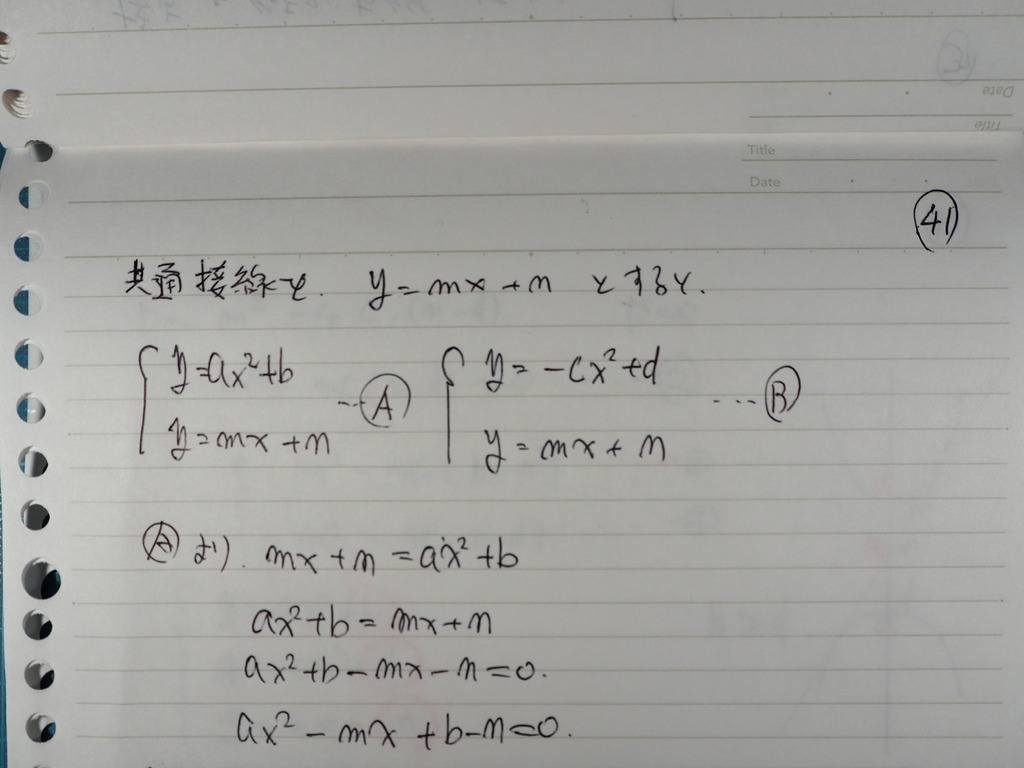 Date
Title
Title
Date
㊶
共通接線を. y=mx+n とすると.
{ y=ax²+b  y=mx+n …Ⓐ { y=-cx²+d  y=mx+n …Ⓑ
Ⓐより. mx+n=ax²+b
ax²+b=mx+n
ax²+b-mx-n=0.
ax²-mx+b-n=0.